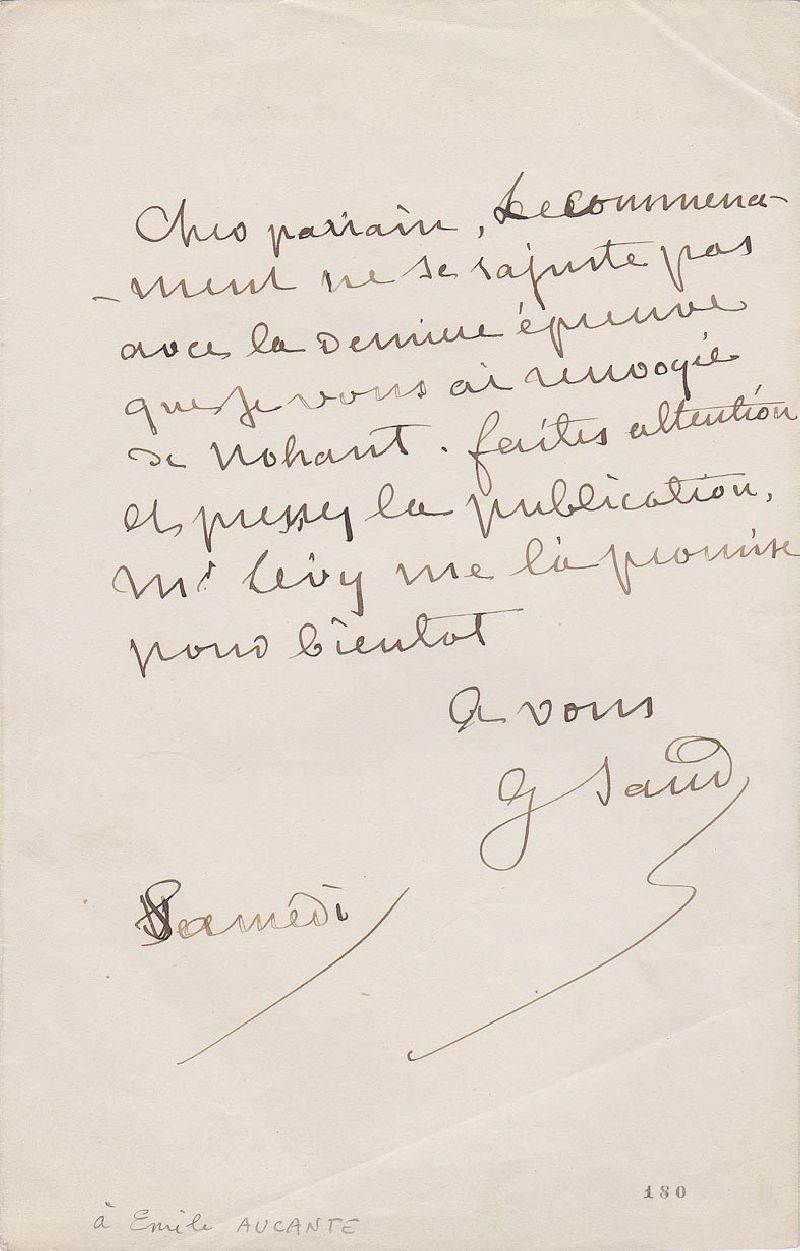 Cher parrain, Le commenca-
-ment ne se rajuste pas
avec la derniere épreuve
que je vous ai renvoyée
de Nohant. faites attention
et pressez la publication,
Mr Lévy me l'a promise
pour bientot
a vous
G Sand
Samedi
180
à Emile AUCANTE